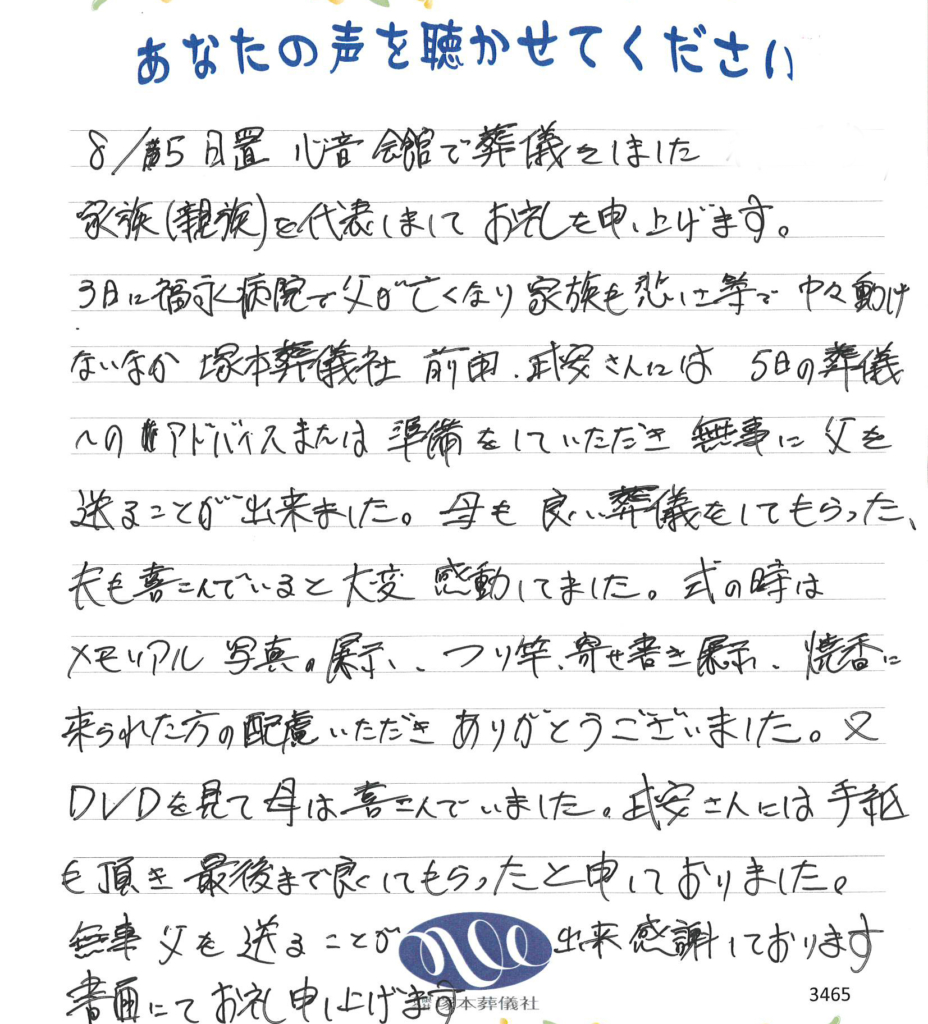 あなたの声を聴かせてください
8/5 日置 心音会館で葬儀をしました
家族(親族)を代表しましてお礼を申し上げます。
3日に福永病院で父が亡くなり家族も悲しさ等で中々動け
ないなか 塚本葬儀社 前田、武安さんには 5日の葬儀
へのアドバイスまたは準備をしていただき無事に父を
送ることが出来ました。母も良い葬儀をしてもらった、
夫も喜こんでいると大変感動してました。式の時は
メモリアル写真の展示、つり竿、寄せ書き展示、焼香に
来られた方の配慮いただきありがとうございました。又
DVDを見て母は喜こんでいました。武安さんには手紙
も頂き最後まで良くしてもらったと申しておりました。
無事父を送ることが出来感謝しております
書面にてお礼申し上げます
塚本葬儀社
3465